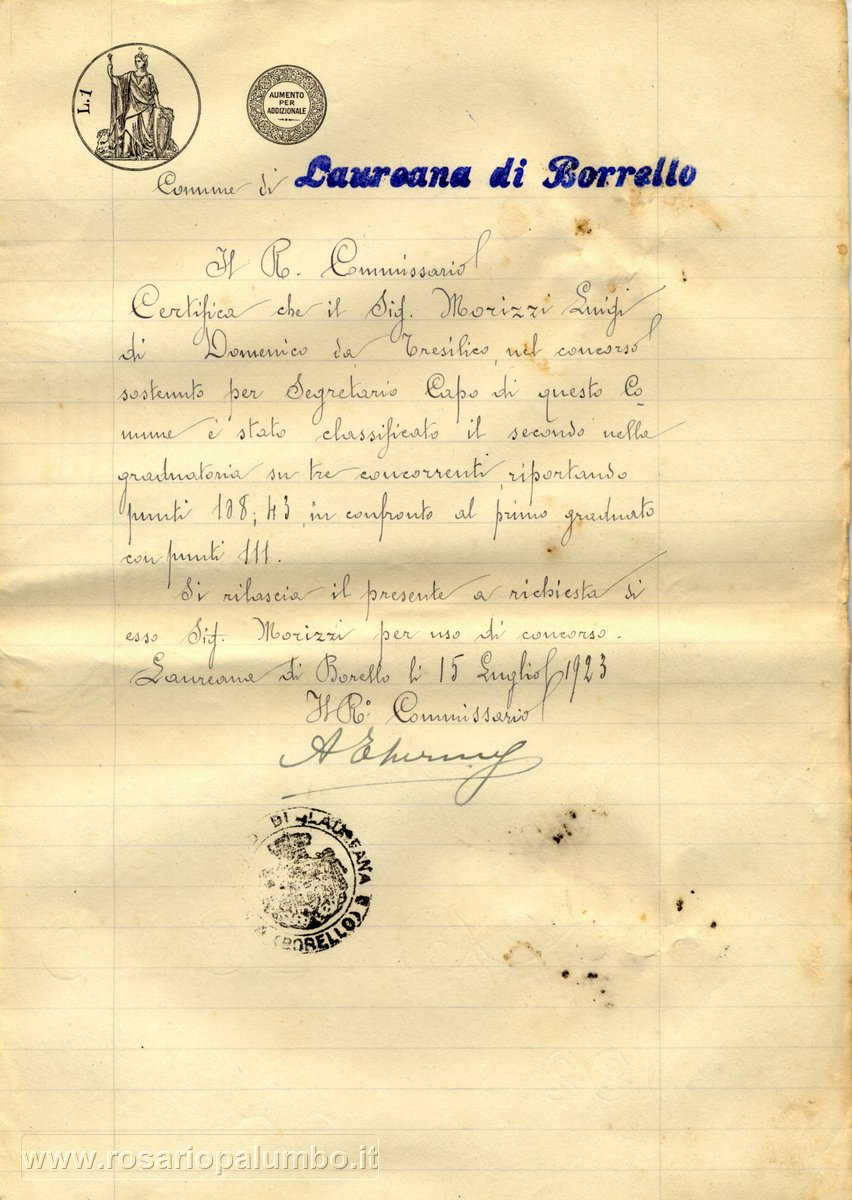 L.1
AUMENTO
PER
ADDIZIONALE
Comune di Laureana di Borrello
Il R. Commissario
Certifica che il Sig. Morizzi Luigi
di Domenico da Tresilico, nel concorso
sostenuto per Segretario Capo di questo Co-
mune è stato classificato il secondo nella
graduatoria su tre concorrenti, riportando
punti 108,43, in confronto al primo graduato
con punti 111.
Si rilascia il presente a richiesta di
esso Sig. Morizzi per uso di concorso.
Laureana di Borello li 15 Luglio 1923
Il R.º Commissario
DI LAUREANA
(BORELLO)
www.rosariopalumbo.it